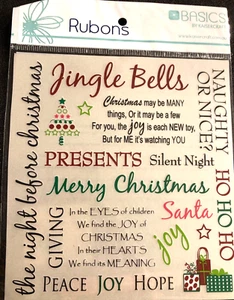 Rubons
BASICS
Jingle Bells
Christmas may be MANY
things, Or it may be a few
For you, the joy is each NEW toy,
But for ME it's watching YOU
NAUGHTY
OR NICE?
the night before christmas
PRESENTS Silent Night
Merry Christmas
HO HO HO
GIVING
In the EYES of children
We find the JOY of
CHRISTMAS
In their HEARTS
We find its MEANING
Santa
joy
PEACE JOY HOPE